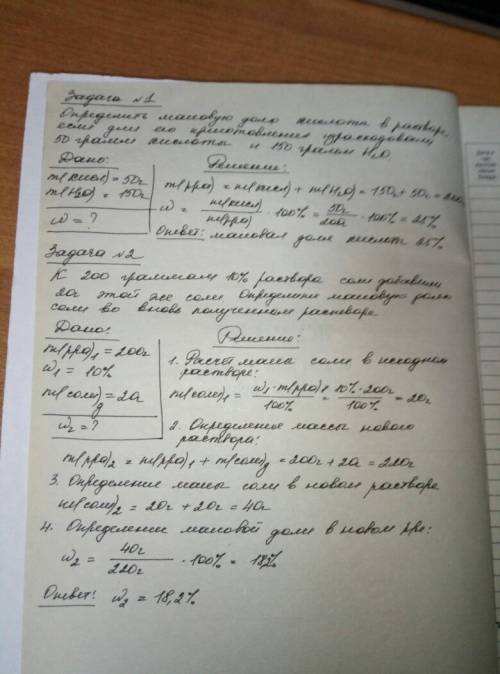 Задача №1
Определить массовую долю кислоты в растворе,
если для его приготовления израсходовали
50 грамм кислоты и 150 грамм H₂O.
Дано: Решение:
m(кисл) = 50г m(рра) = m(кисл) + m(H₂O) = 150г + 50г = 200г
m(H₂O) = 150г
ω = ? ω = m(кисл)/m(рра) · 100% = 50г/200г · 100% = 25%
Ответ: массовая доля кислоты 25%
Задача №2
К 200 граммам 10% раствора соли добавили
20г этой же соли. Определите массовую долю
соли во вновь полученном растворе
Дано: Решение:
m(рра)₁ = 200г 1. Расчёт массы соли в исходном
ω₁ = 10% растворе:
m(соли)g = 20г m(соли)₁ = ω₁·m(рра)₁/100% = 10%·200г/100% = 20г
ω₂ = ? 2. Определение массы нового
раствора:
m(рра)₂ = m(рра)₁ + m(соли)g = 200г + 20г = 220г
3. Определение массы соли в новом растворе
m(соли)₂ = 20г + 20г = 40г
4. Определение массовой доли в новом рре:
ω₂ = 40г/220г · 100% = 18,2%
Ответ: ω₂ = 18,2%